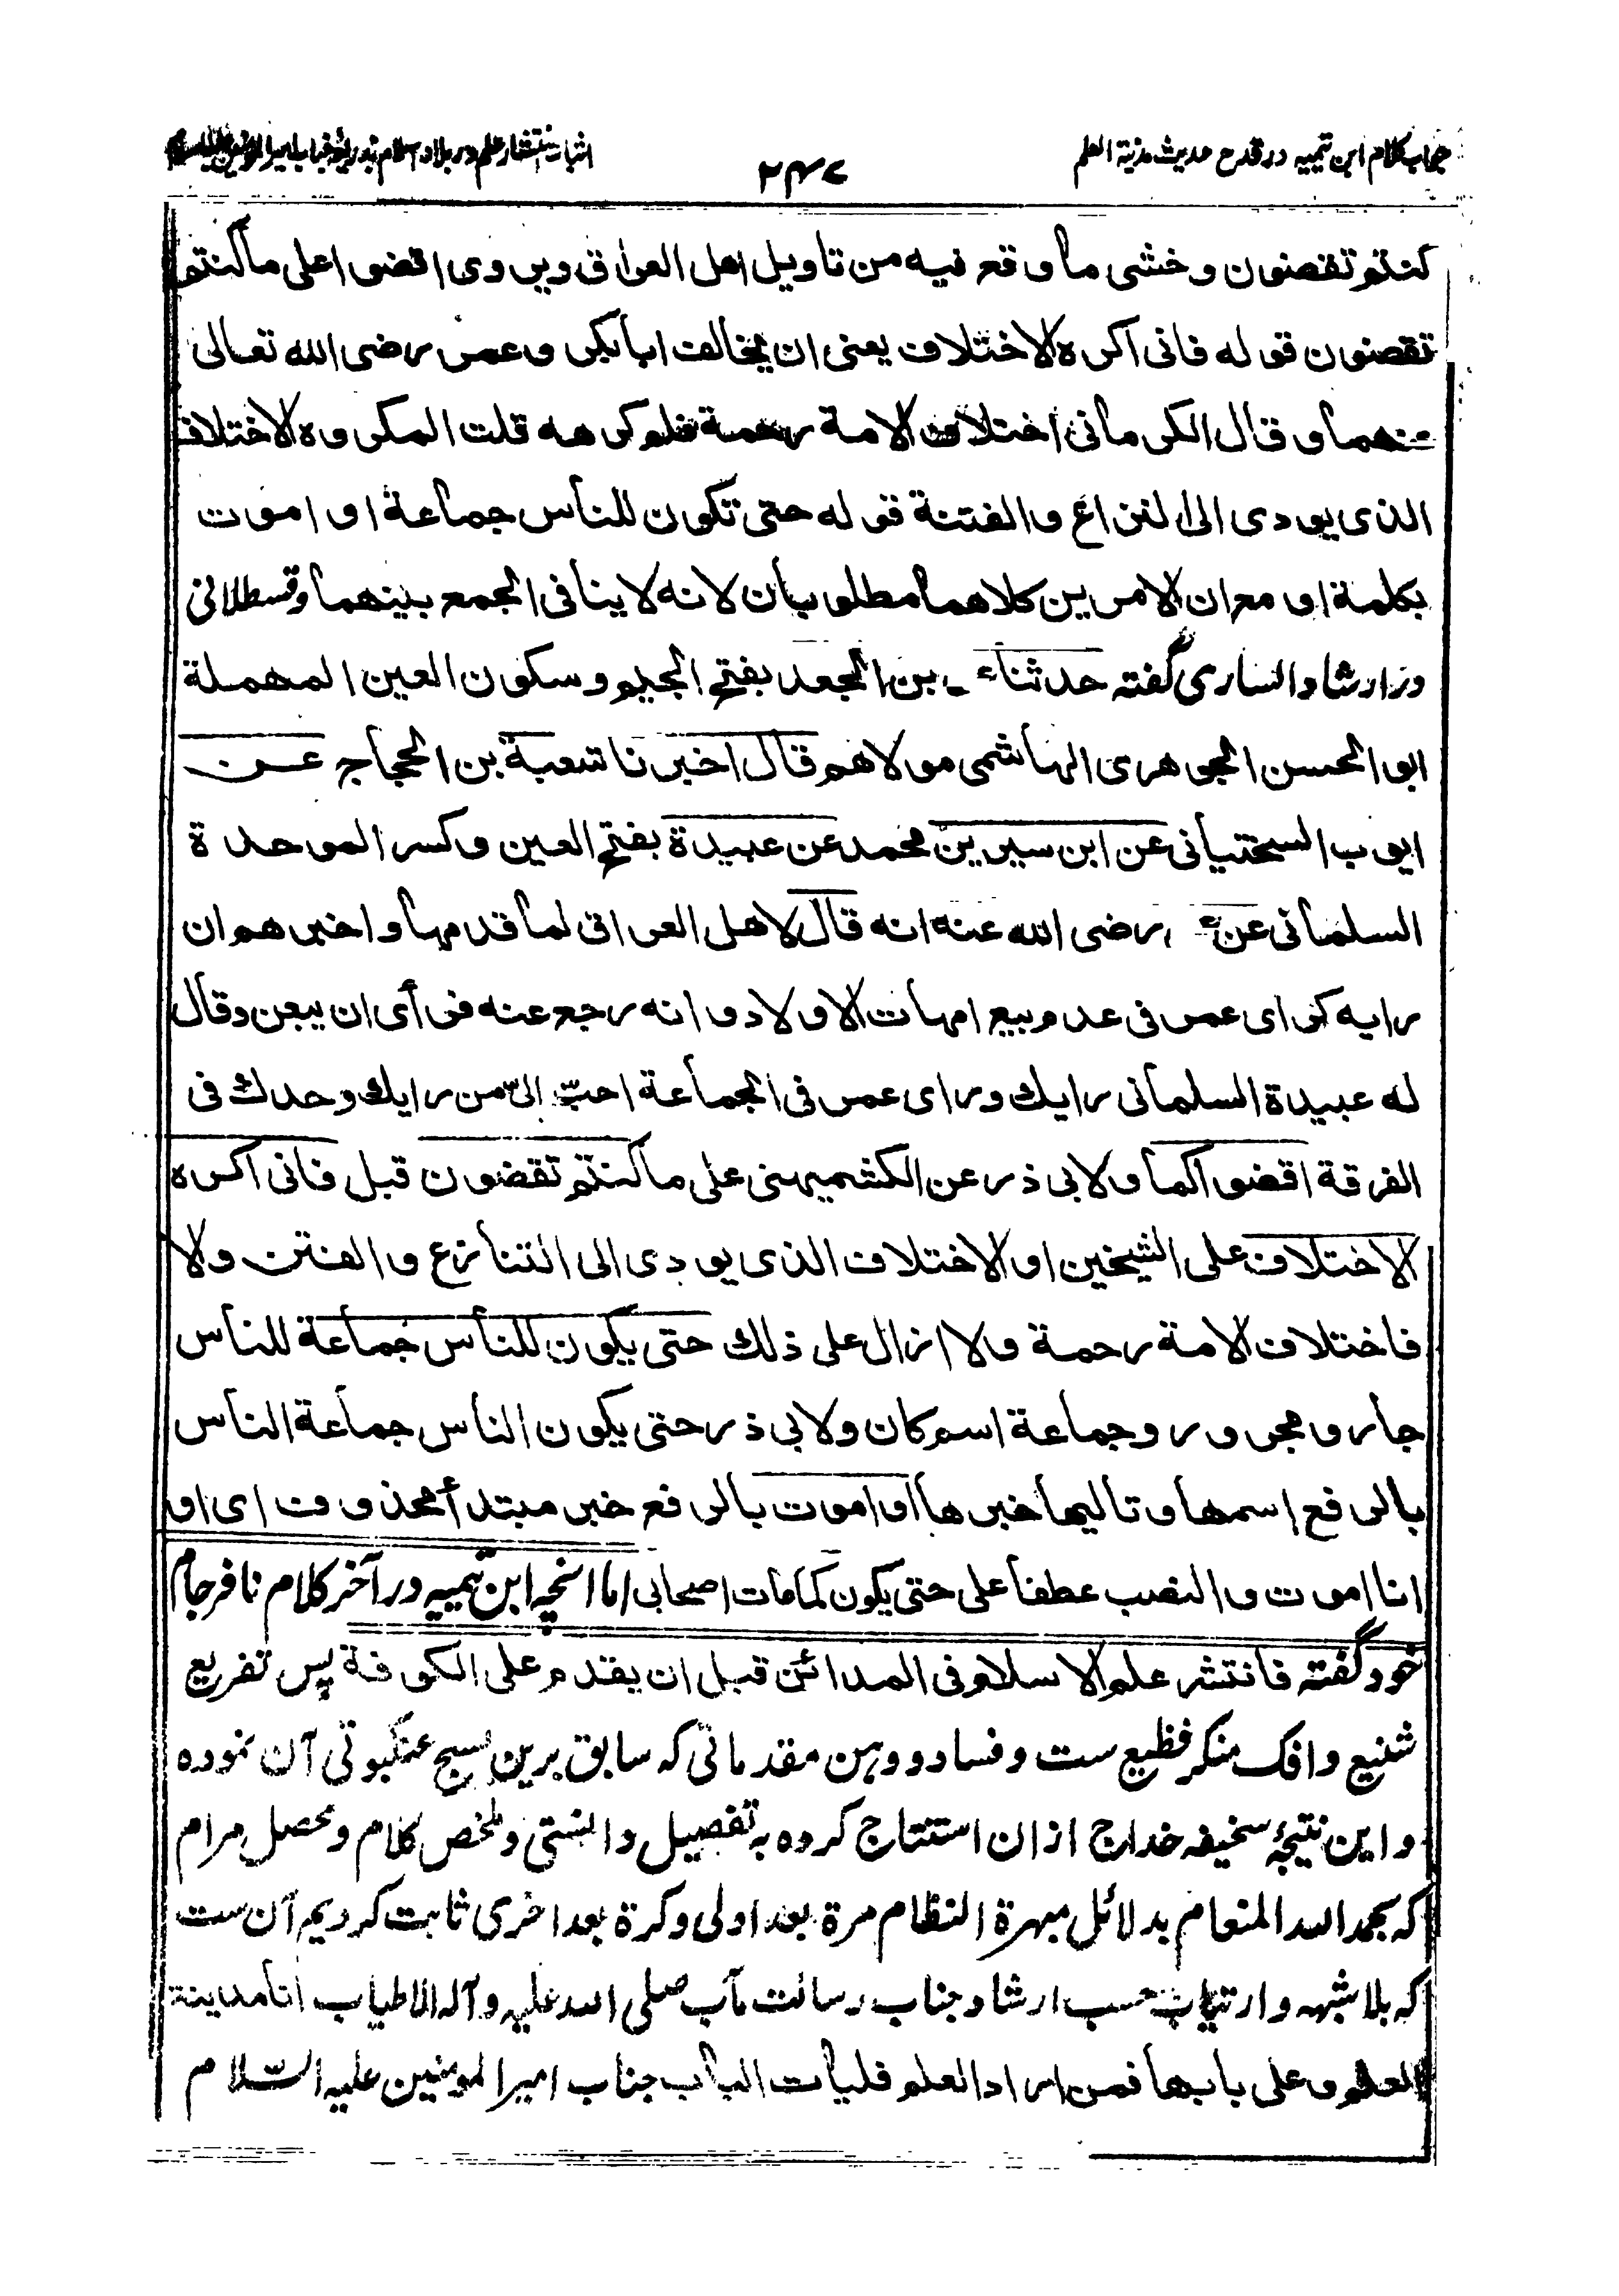 جواب کلام ابن تیمیه در قدح حدیث مدینة العلم
۲۴۷
اثبات انتشار علم در بلاد اسلام بذریعهٔ جناب امیرالمومنین علیه السلام
كنتم تقضون وخشى ما وقع فيه من تاويل اهل العراق ويروى اقضوا على ما كنتم
تقضون قوله فانى اكره الاختلاف يعنى ان يخالف ابا بكر وعمر رضى الله تعالى
عنهما وقال الكرمانى اختلاف الامة رحمة فلم كرهه قلت المكروه الاختلاف
الذى يودى الى النزاع والفتنة قوله حتى تكون للناس جماعة او اموت
بكلمة او مع ان الامرين كلاهما مطلوبان لانه لا ينافى الجمع بينهما وقسطلانی
در ارشاد الساری گفته حدثنا بن الجعد بفتح الجيم وسكون العين المهملة
ابو الحسن الجوهرى الهاشمى مولاهم قال اخبرنا شعبة بن الحجاج عن
ايوب السختيانى عن ابن سيرين محمد عن عبيدة بفتح العين وكسر الموحدة
السلمانى عن رضى الله عنه انه قال لاهل العراق لما قدمها واخبرهم ان
رايه كراى عمر فى عدم بيع امهات الاولاد وانه رجع عنه فرأى ان يبعن وقال
له عبيدة السلمانى رايك وراى عمر فى الجماعة احبّ الىّ من رايك وحدك فى
الفرقة اقضوا كما ولابى ذر عن الكشميهنى على ما كنتم تقضون قبل فانى اكره
الاختلاف على الشيخين او الاختلاف الذى يودى الى التنازع والفتن ولا
فاختلاف الامة رحمة ولا ازال على ذلك حتى يكون للناس جماعة للناس
جار ومجرور وجماعة اسم كان ولابى ذر حتى يكون الناس جماعة الناس
بالرفع اسمها وتاليها خبرها او اموت بالرفع خبر مبتدأ محذوف اى او
انا اموت والنصب عطفا على حتى يكون كما مات اصحابى اما انچه ابن تیمیه در آخر کلام نافرجام
خود گفته فانتشر علم الاسلام فى المدائن قبل ان يقدم على الكوفة پس تفریع
شنیع وافک منکر فظیع ست وفساد ووهن مقدماتی که سابق برین نسج عنکبوتی آن نموده
واین نتیجهٔ سخیفه خداج ازان استنتاج کرده به تفصیل دانستی وملخص کلام ومحصل مرام
که بحمد الله المنعام بدلائل مبهرة النظام مرة بعد اولی وکرة بعد اخری ثابت کردیم آن ست
که بلا شبهه وارتیاب حسب ارشاد جناب رسالت مآب صلی الله علیه وآله الاطیاب انا مدينة
العلم وعلى بابها فمن اراد العلم فليات الباب جناب امیر المومنین علیه السّلام